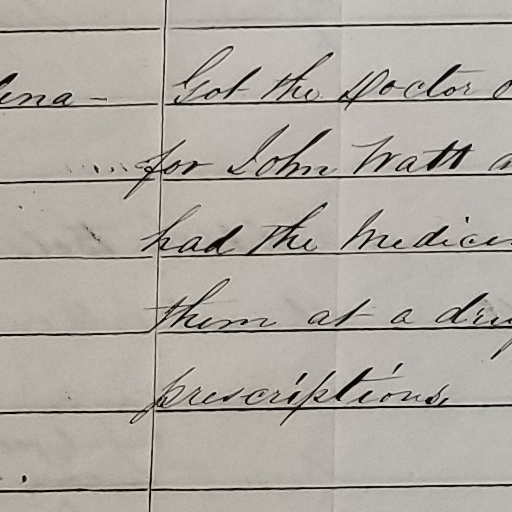 Got the Doctor
for John Watt
had the
them at a
prescriptions,